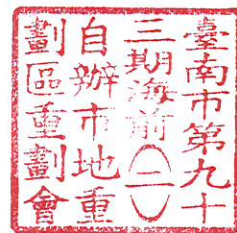 臺南市第九十
三期海前(二)
自辦市地重
劃區重劃會